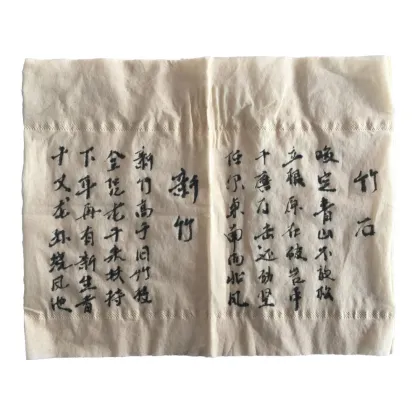 竹石
咬定青山不放松
立根原在破岩中
千磨万击还劲坚
任尔東南西北风
新竹
新竹高于旧竹枝
全凭老干来扶持
下年再有新生者
十丈龙孙绕凤池